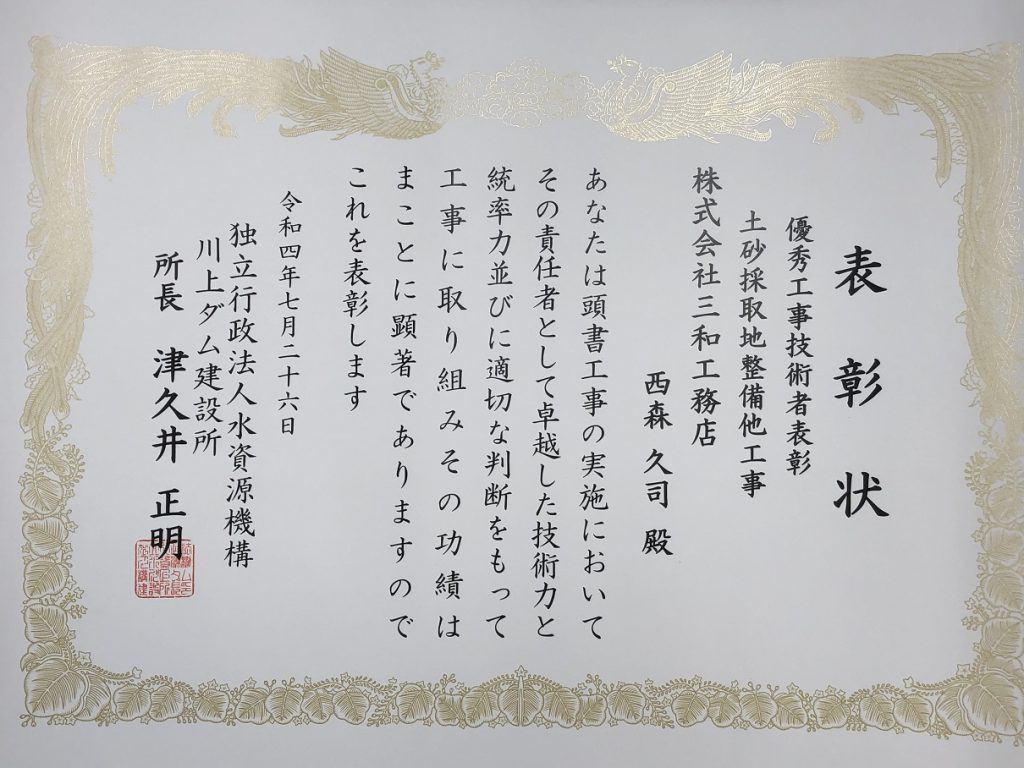 表彰状
優秀工事技術者表彰
土砂採取地整備他工事
株式会社三和工務店
西森 久司 殿
あなたは頭書工事の実施において
その責任者として卓越した技術力と
統率力並びに適切な判断をもって
工事に取り組みその功績は
まことに顕著でありますので
これを表彰します
令和四年七月二十六日
独立行政法人水資源機構
川上ダム建設所
所長 津久井 正明